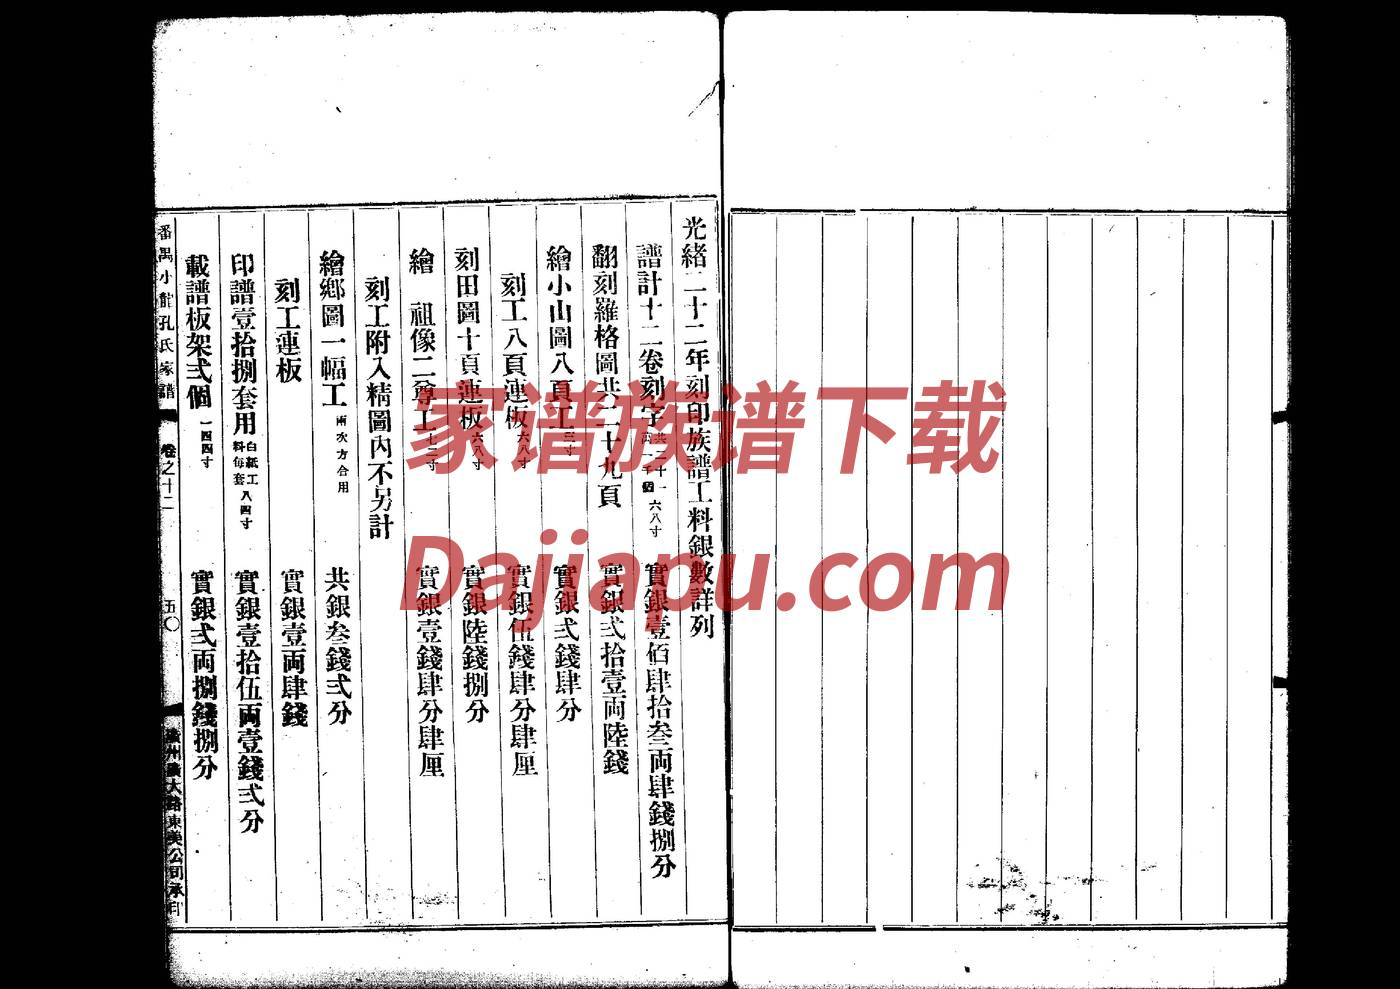 光緒二十二年刻印族譜工料銀數詳列
譜計十二卷刻字共二十一萬一千個六八寸 實銀壹佰肆拾叁両肆錢捌分
翻刻羅格圖共二十九頁 實銀弍拾壹両陸錢
繪小山圖八頁工三寸 實銀弍錢肆分
刻工八頁連板六八寸 實銀伍錢肆分肆厘
刻田圖十頁連板六八寸 實銀陸錢捌分
繪 祖像二尊工七二寸 實銀壹錢肆分肆厘
刻工附入精圖內不另計
繪鄉圖一幅工兩次方合用 共銀叁錢弍分
刻工連板 實銀壹両肆錢
印譜壹拾捌套用白紙工料每套八四寸 實銀壹拾伍両壹錢弍分
載譜板架弍個一四四寸 實銀弍両捌錢捌分
番禺小龍孔氏家譜 卷之十二 五〇 廣州惠大路東美公司承印
家谱族谱下载
Dajiapu.com